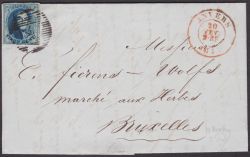 ANVERS
Messieurs
E. fiérens-Wolfs
marché aux Herbes
Bruxelles